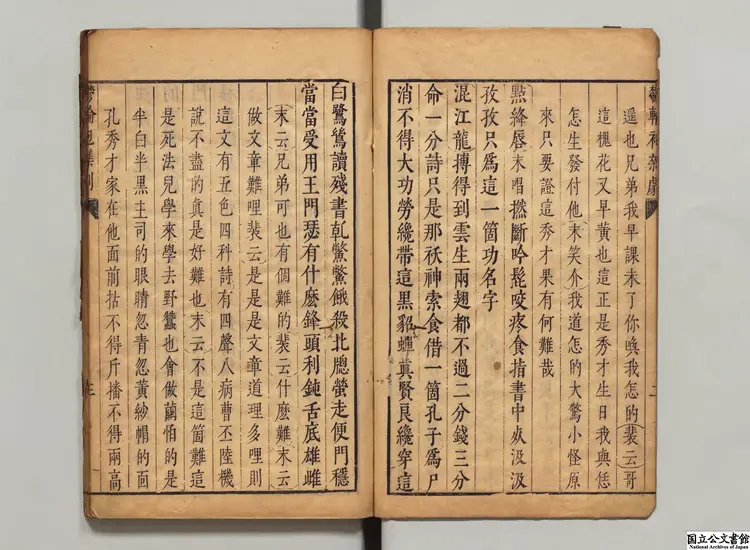 遥也兄弟我早課未了你喚我怎的裴云哥
這槐花又早黄也這正是秀才生日我與恁
怎生發付他末笑介我道怎的大驚小怪原
來只要證這秀才果有何難哉
點絳唇末唱撚斷吟髭咬疼食指書中汲汲
孜孜只爲這一箇功名字
混江龍摶得到雲生兩翅都不過二分錢三分
命一分詩只是那祆神索食借一箇孔子爲尸
消不得大功勞纔帶這黑貂蟬真賢良纔穿這
白鷺鷥讀殘書乹鱉鱉餓殺北牕螢走便門穩
當當受用王門瑟有什麽鋒頭利鈍舌底雄雌
末云兄弟可也有個難的裴云什麽難末云
做文章難哩裴云是是是文章道理多哩則
這文有五色四科詩有四聲八病曹丕陸機
說不盡的真是好難也末云不是這箇難這
是死法兒學來學去野蠶也會做繭怕的是
半白半黑主司的眼睛忽青忽黄紗帽的面
孔秀才家在他面前拈不得斤播不得兩高
国立公文書館
National Archives of Japan